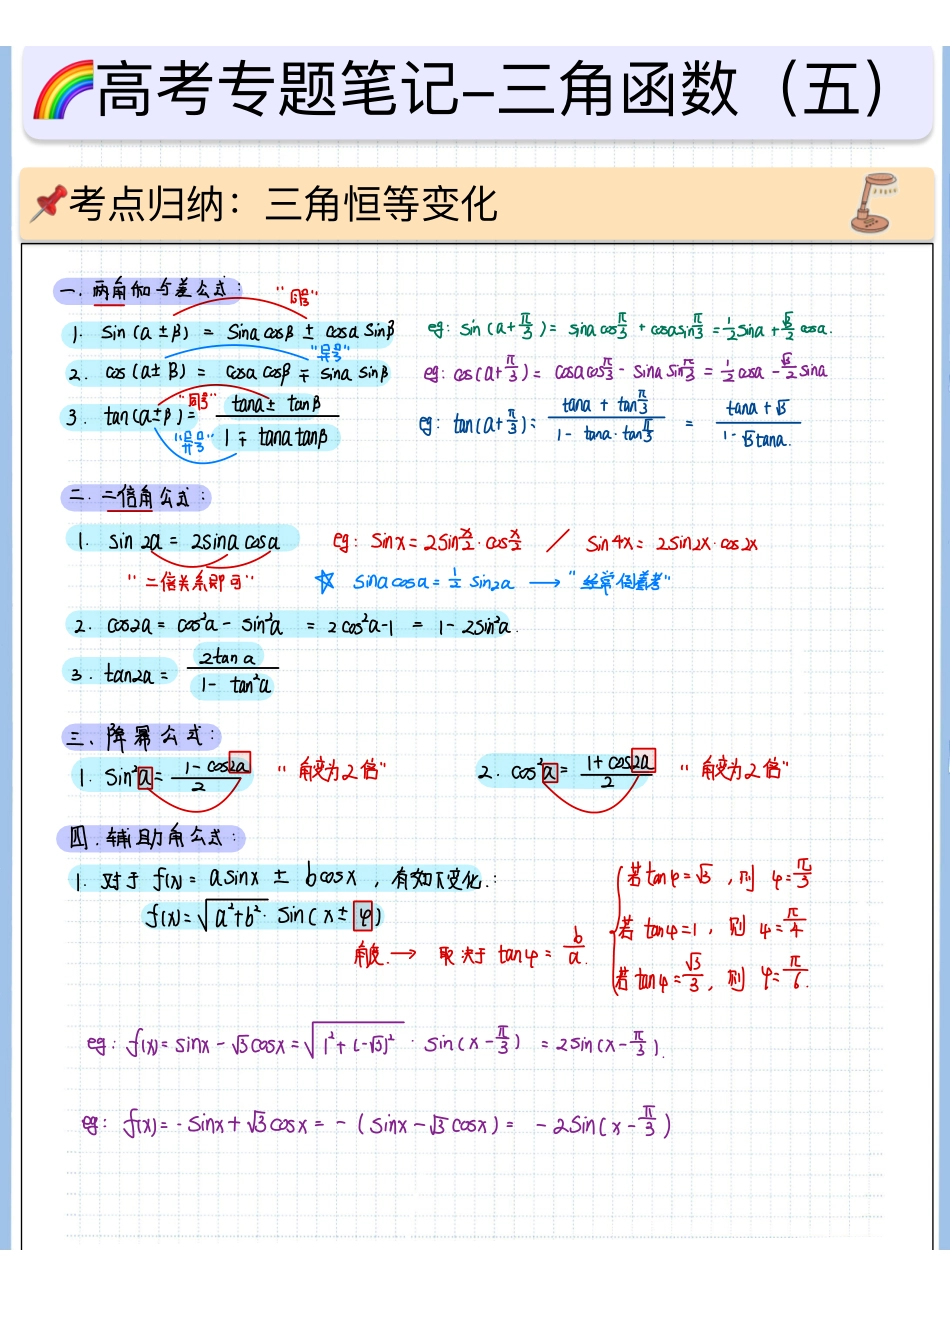 高考专题笔记–三角函数（五）
考点归纳：三角恒等变化
一. 两角和与差公式：
"同号"
1. sin(a±β) = sina cosβ ± cosa sinβ
eg: sin(a+π/3) = sina cosπ/3 + cosa sinπ/3 = 1/2 sina + √3/2 cosa.
"异号"
2. cos(a±β) = cosa cosβ ∓ sina sinβ
eg: cos(a+π/3) = cosa cosπ/3 - sina sinπ/3 = 1/2 cosa - √3/2 sina
"同号"
3. tan(a±β) = (tana ± tanβ)/(1 ∓ tana tanβ)
"异号"
eg: tan(a+π/3) = (tana + tanπ/3)/(1 - tana·tanπ/3) = (tana+√3)/(1-√3tana).
二. 二倍角公式：
1. sin2a = 2sina cosa
eg: sinx = 2sin x/2 · cos x/2 / sin4x = 2sin2x·cos2x
"二倍关系即可"
☆ sina cosa = 1/2 sin2a → "经常倒着考"
2. cos2a = cos²a - sin²a = 2cos²a-1 = 1-2sin²a.
3. tan2a = 2tana/(1-tan²a)
三、降幂公式：
1. sin²a = (1-cos2a)/2 "角变为2倍"
2. cos²a = (1+cos2a)/2 "角变为2倍"
四. 辅助角公式：
1. 对于 f(x) = asinx ± bcosx，有如下变化：
f(x) = √(a²+b²)· sin(x±φ)
角度. → 取决于 tanφ = b/a.
若tanφ=√3，则 φ=π/3
若 tanφ=1，则 φ=π/4
若tanφ=√3/3，则 φ=π/6.
eg: f(x) = sinx - √3cosx = √(1²+(-√3)²) · sin(x-π/3) = 2sin(x-π/3).
eg: f(x) = -sinx + √3cosx = -(sinx-√3cosx) = -2sin(x-π/3)